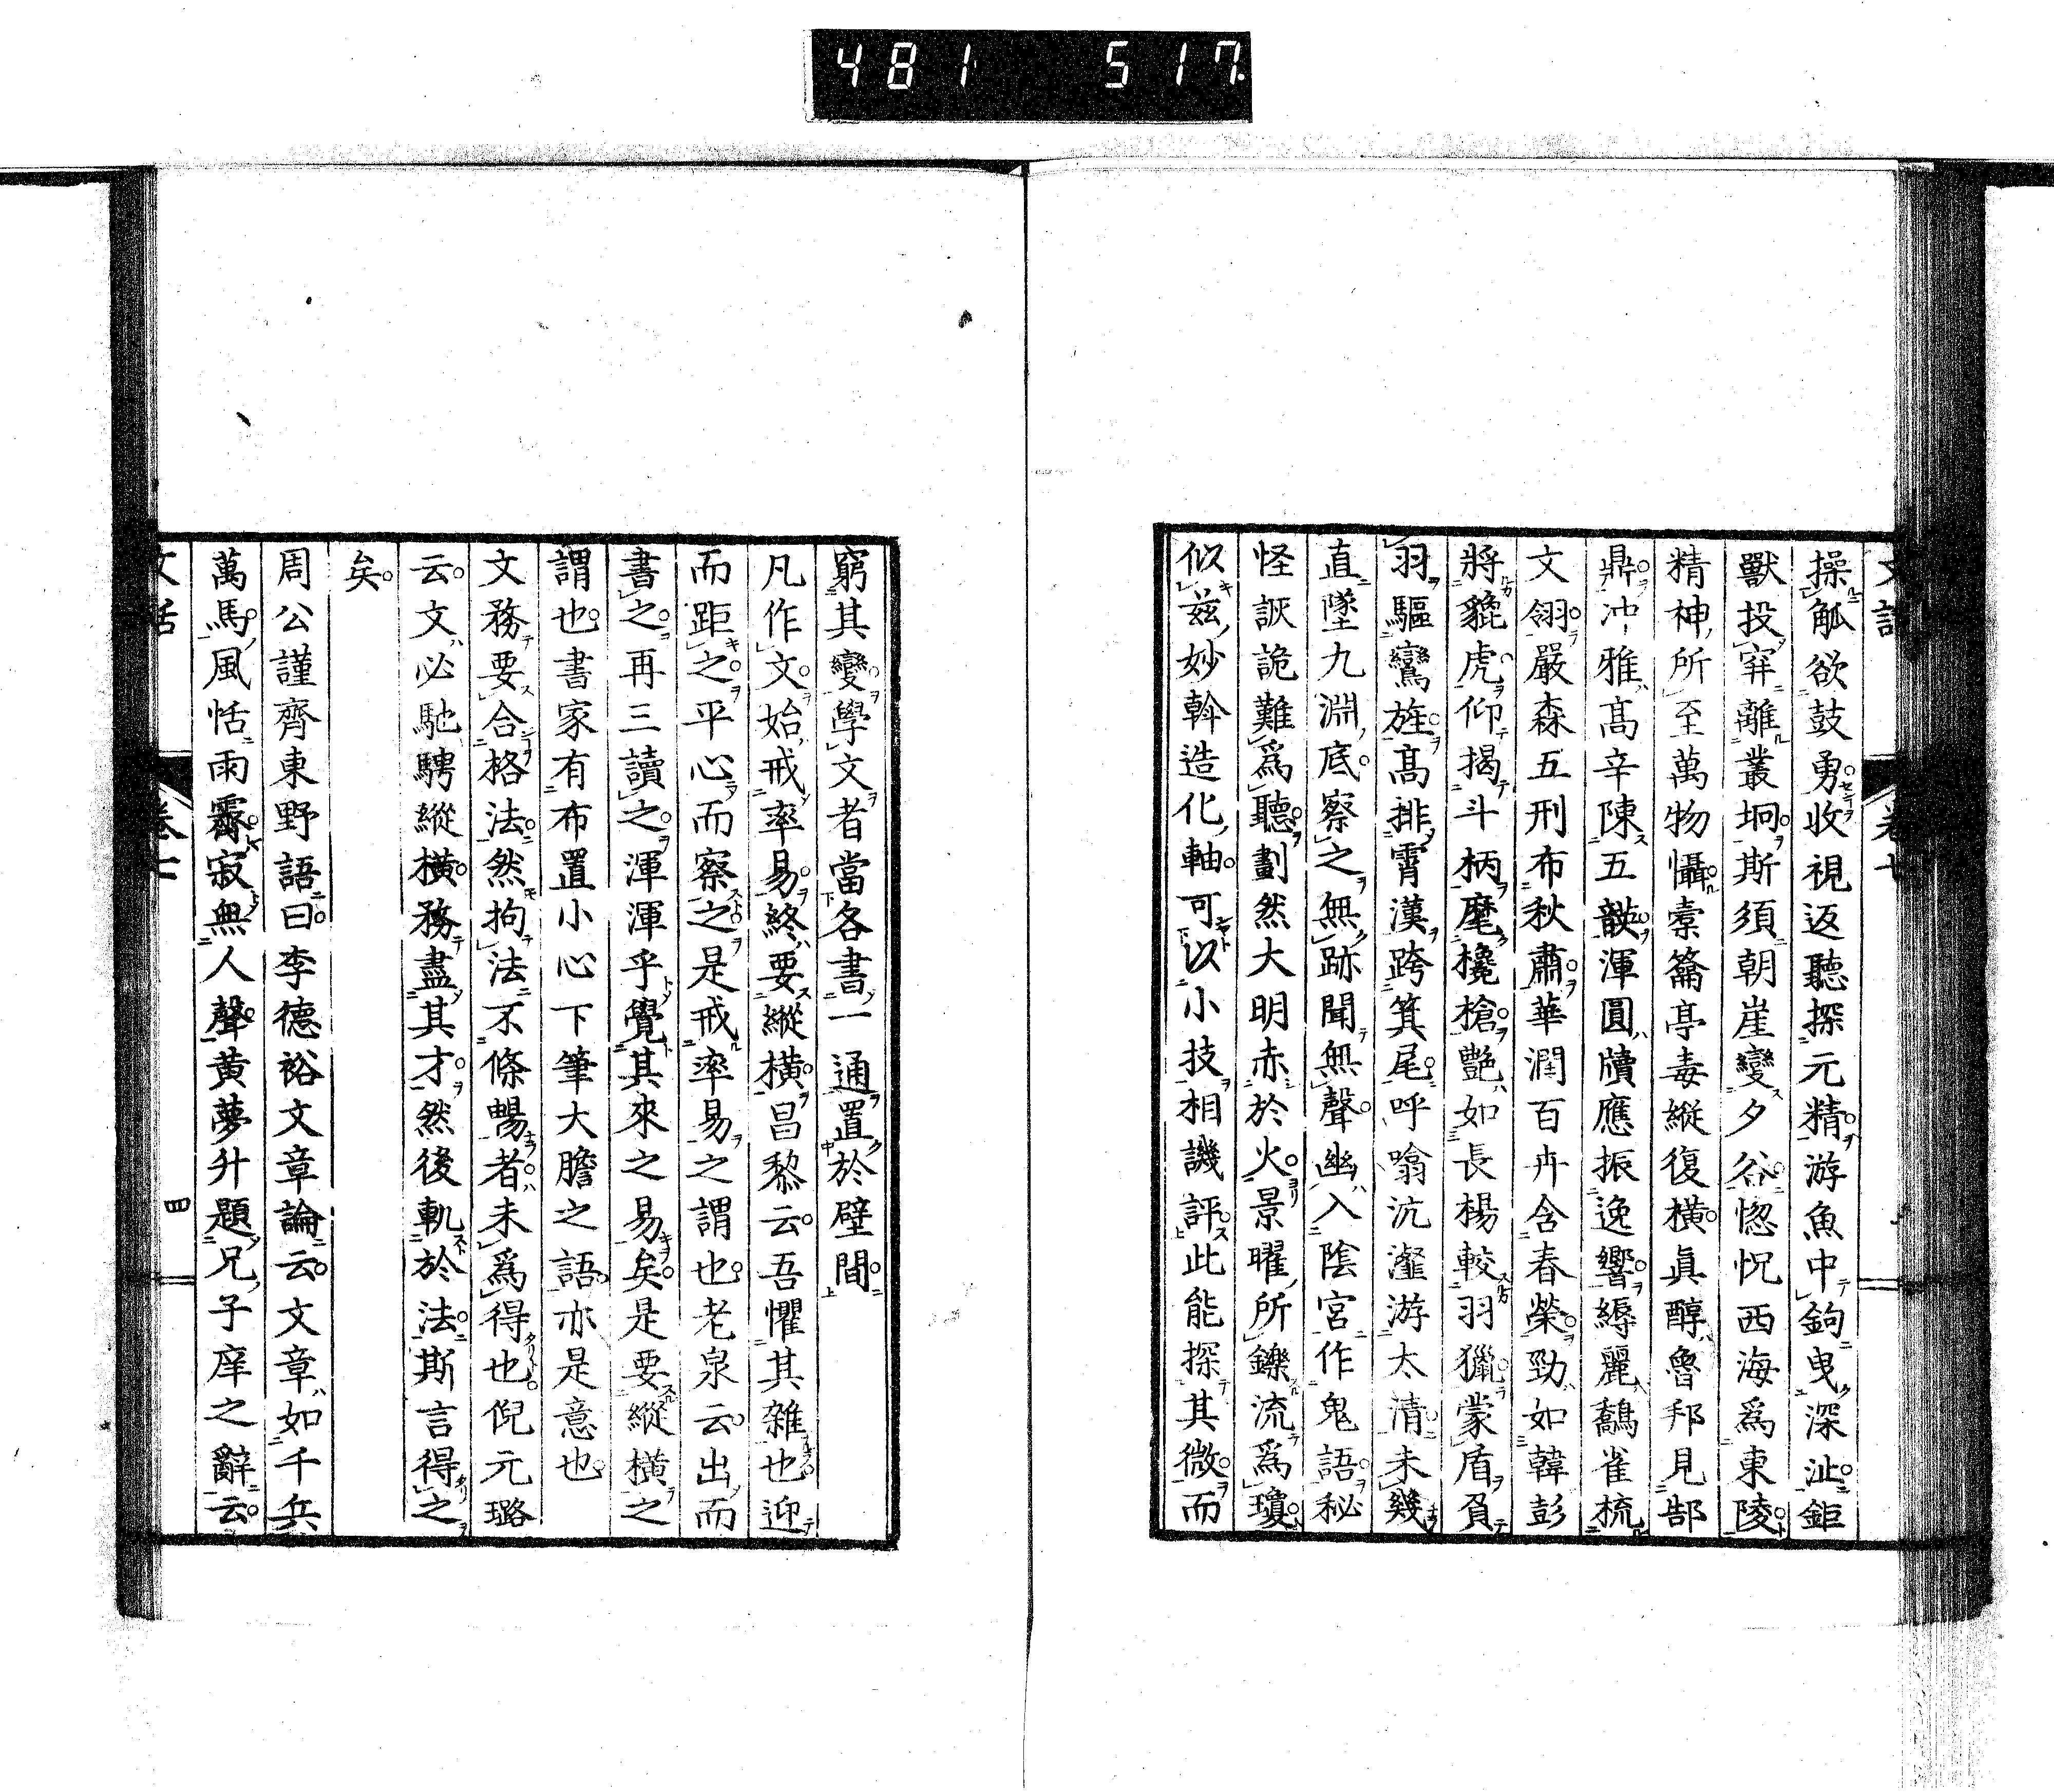 481 517
文話 卷七
操觚欲鼓勇收視返聽探元精游魚中鉤曳深沚鉅
獸投穽離叢坰斯須朝崖變夕谷惚怳西海爲東陵
精神所至萬物懾橐籥亭毒縱復橫眞醇魯邦見郜
鼎冲雅高辛陳五韺渾圓牘應振逸響縟麗鷮雀梳
文翎嚴森五刑布秋肅華潤百卉含春榮勁如韓彭
將貔虎仰揭斗柄麾欃槍艶如長楊較羽獵蒙盾負
羽驅鸞旌高排霄漢跨箕尾呼噏沆瀣游太清未幾
直墜九淵底察之無跡聞無聲幽入陰宮作鬼語秘
怪詼詭難爲聽劃然大明赤於火景曜所鑠流爲瓊
似兹妙斡造化軸可以小技相譏評此能探其微而
窮其變學文者當各書一通置於壁間
凡作文始戒率易終要縱橫昌黎云吾懼其雜也迎
而距之平心而察之是戒率易之謂也老泉云出而
書之再三讀之渾渾乎覺其來之易矣是要縱橫之
謂也書家有布置小心下筆大膽之語亦是意也
文務要合格法然拘法不條暢者未爲得也倪元璐
云文必馳騁縱橫務盡其才然後軌於法斯言得之
矣
周公謹齊東野語曰李德裕文章論云文章如千兵
萬馬風恬雨霽寂無人聲黄夢升題兄子庠之辭云
文話 卷七 四